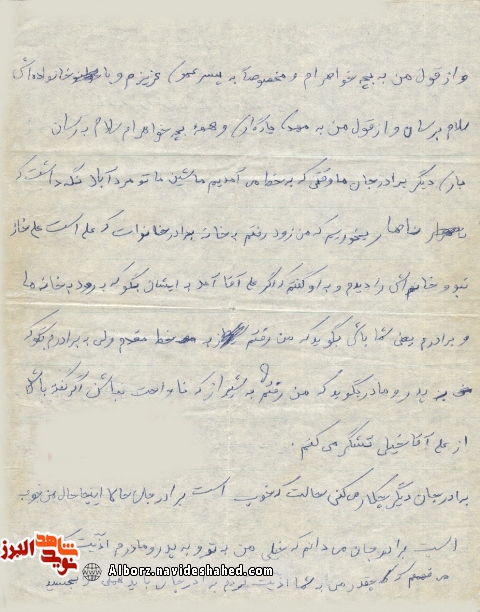 و از قول من به بچه خواهرام و مخصوصاً به پسر عمو عزیزم و با خانواده اش
سلام برسان و از قول من به و همهٔ بچه خواهرام سلام برسان
بار دیگر برادر جان ما وقتی که به خط می آمدیم ماشین ما تو مرد آباد نگه داشت که
ناهار بخوریم که من زود رفتم به خانه برادر خانومت که علی است علی خانه
نبود خانم اش را دیدم و به او گفتم که اگر علی آقا آمد به ایشان بگو که برود به خانه ما
و برادرم یعنی شما باشی بگوید که من رفتم به خط مقدم ولی به برادرم بگو که
به پدر و مادر بگوید که من رفتم به شیراز که ناراحت نباشن اگر گفته باشد
از علی آقا خیلی تشکر می کنم .
برادر جان دیگر چکار می کنی حالت که خوب است برادر جان حالا اینجا حال من خوب
است برادر جان می دانم که خیلی من به تو و به پدر و مادرم اذیت
می فهمم که چقدر من به شما اذیت کردم برادر جان باید ببخشید
شاهد
نوید البرز
Alborz.navideshahed.com